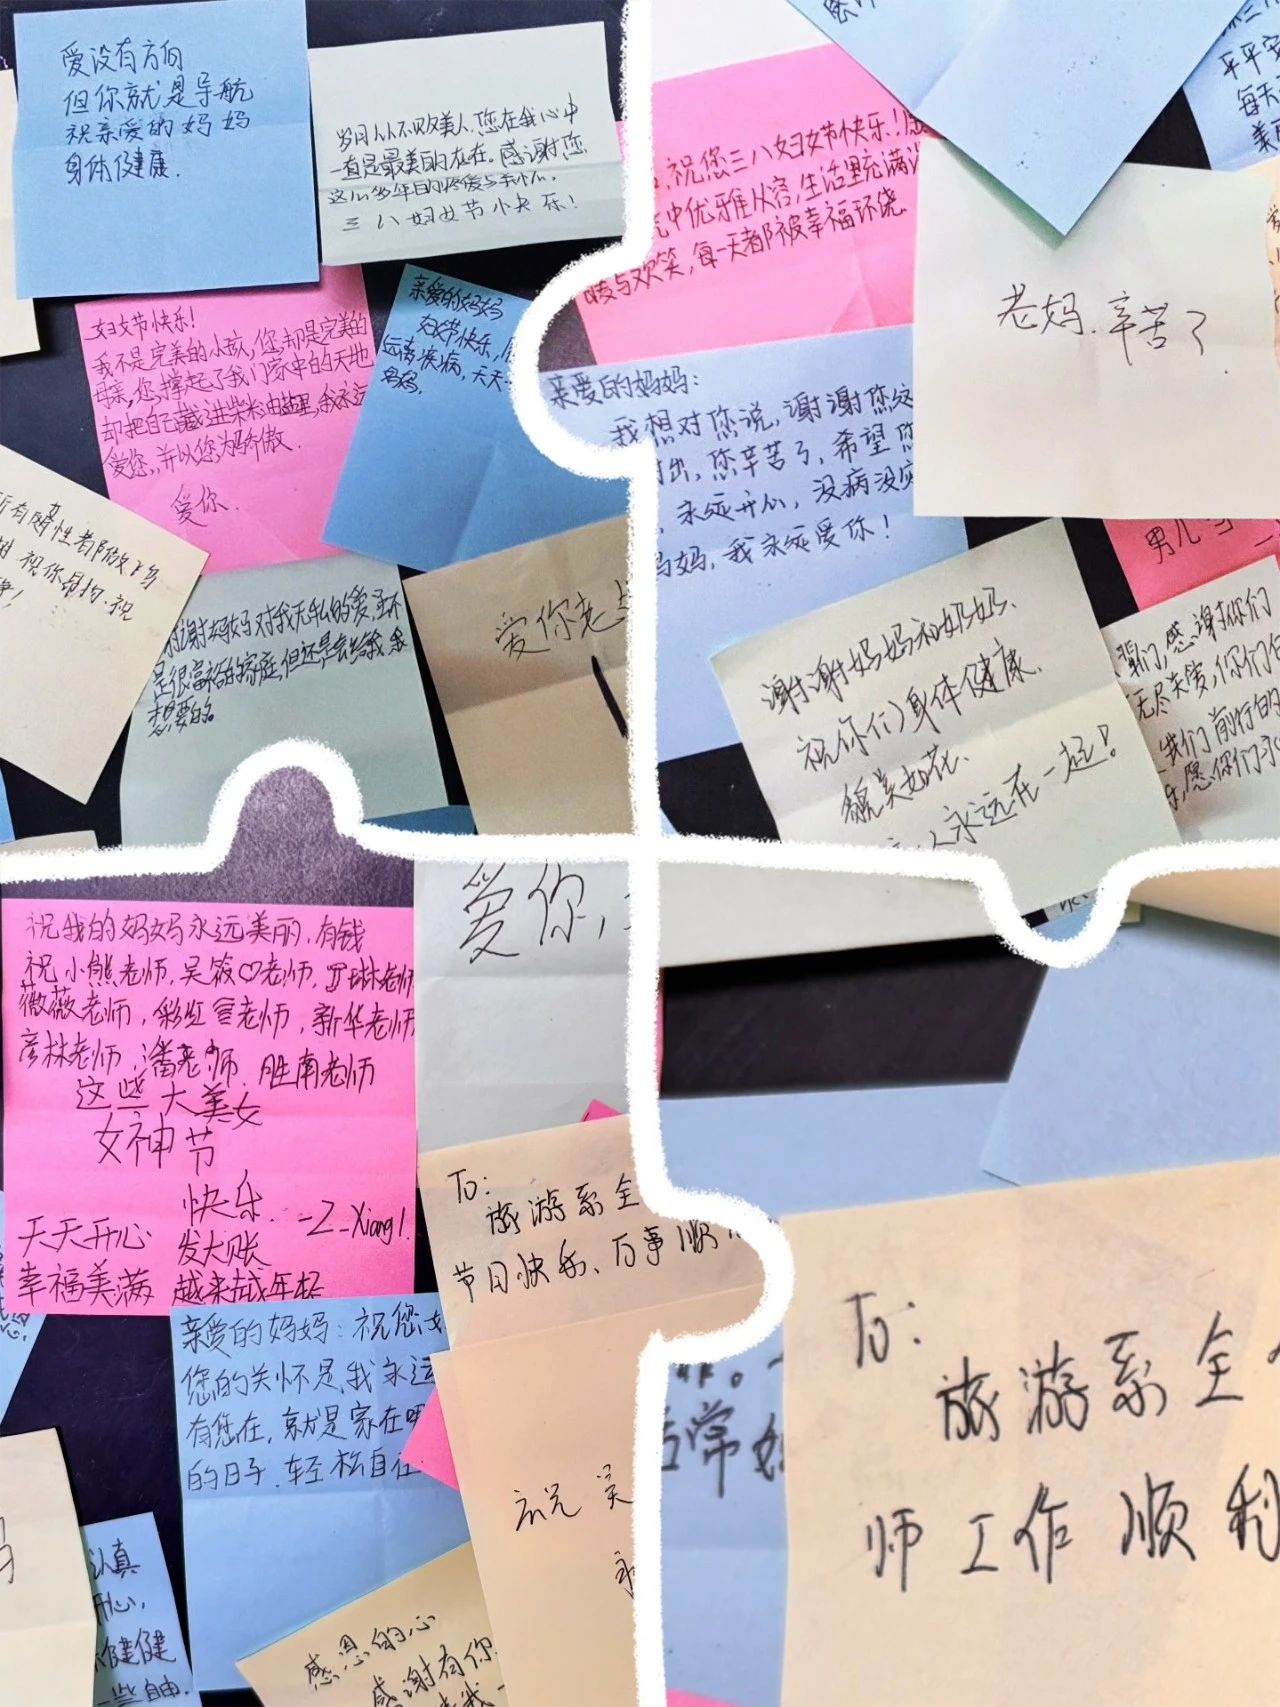 爱没有方向
但你就是导航
祝亲爱的妈妈
身体健康.
岁月从不败美人.您在我心中
一直是最美的存在.感谢您
这么多年的疼爱与关心.
三八妇女节快乐!
妇女节快乐!
我不是完美的小孩,您却是完美的
母亲,您撑起了我们家中的天地
却把自己藏进柴米油盐里,我永远
爱您,并以您为骄傲.
爱你.
亲爱的妈妈
妇女节快乐,
远离疾病,天天
妈妈.
所有
性都
祝你
祝
谢谢妈妈对我无私的爱,虽不
是很富裕的家庭,但还是会给我我
想要的。
爱你老
祝您三八妇女节快乐!
中优雅从容,生活里充满
暖与欢笑,每一天都被幸福环绕.
平平安
每天
美
老妈.辛苦了
亲爱的妈妈:
我想对您说,谢谢您这
付出,您辛苦了,希望您
永远开心,没病没灾
妈妈,我永远爱你!
男儿
谢谢妈妈和妈妈、
祝你们身体健康.
貌美如花.
人永远在一起!
们,感谢你们
无尽关爱,你们
我们前行的
乐,愿你们永
祝我的妈妈永远美丽,有钱
祝小熊老师,吴筱♡老师,罗琳老师
薇薇老师,彩虹老师,新华老师
彦林老师,潘老师.胜南老师
这些大美女
女神节
快乐.
天天开心 发大账 -Z-Xiang!
幸福美满 越来越年轻
爱你,
To:
旅游系全
节日快乐、万事顺
亲爱的妈妈:祝您
您的关怀是,我永远
有您在,就是家在
的日子.轻松自在
祝 吴
永
认真
开心,
健健
一些自由.
感恩的心
感谢有你
常
To:
旅游系全
师工作顺利